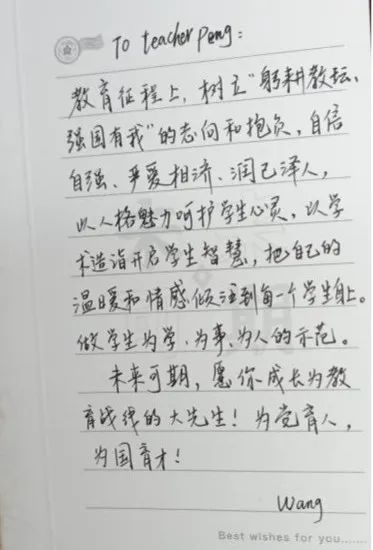 To teacher Peng:
教育征程上，树立“躬耕教坛、
强国有我”的志向和抱负，自信
自强、严爱相济、润己泽人，
以人格魅力呵护学生心灵，以学
术造诣开启学生智慧，把自己的
温暖和情感倾注到每一个学生身上。
做学生为学、为事、为人的示范。
未来可期，愿你成长为教
育战线的大先生！为党育人，
为国育才！
Wang
Best wishes for you......